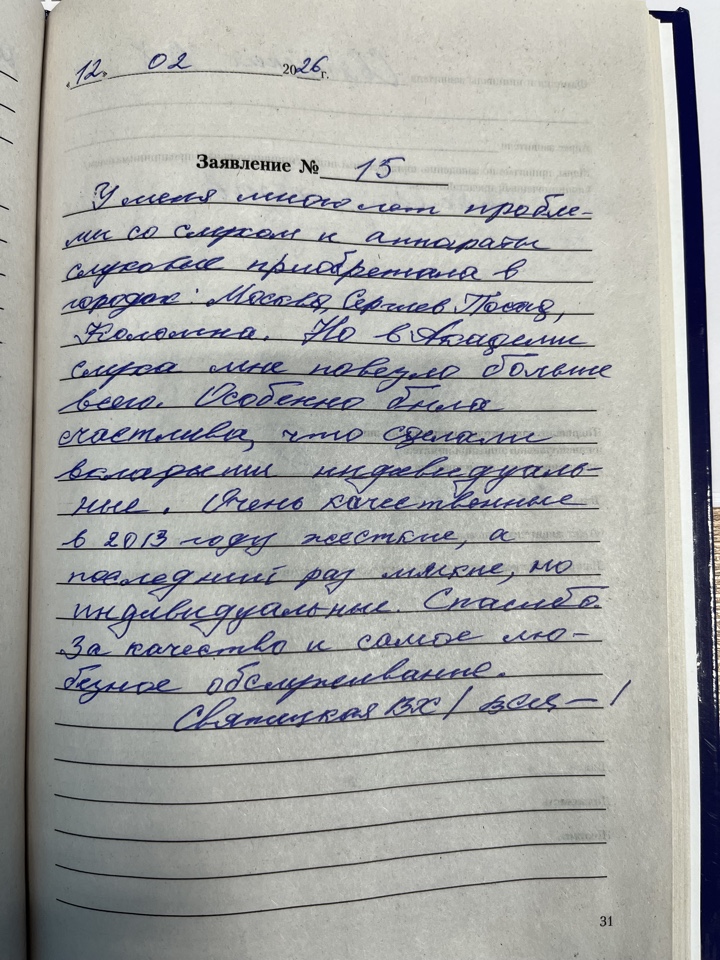 "12" 02 2026 г.
Заявление № 15
У меня много лет пробле-
мы со слухом и аппараты
слуховые приобретала в
городах: Москва, Сергиев Посад,
Коломна. Но в Академии
слуха мне повезло больше
всего. Особенно была
счастлива, что сделали
вкладыши индивидуаль-
ные. Очень качественные
в 2013 году жесткие, а
последний раз мягкие, но
индивидуальные. Спасибо.
За качество и самое лю-
безное обслуживание.
Святицкая ВХ /
31